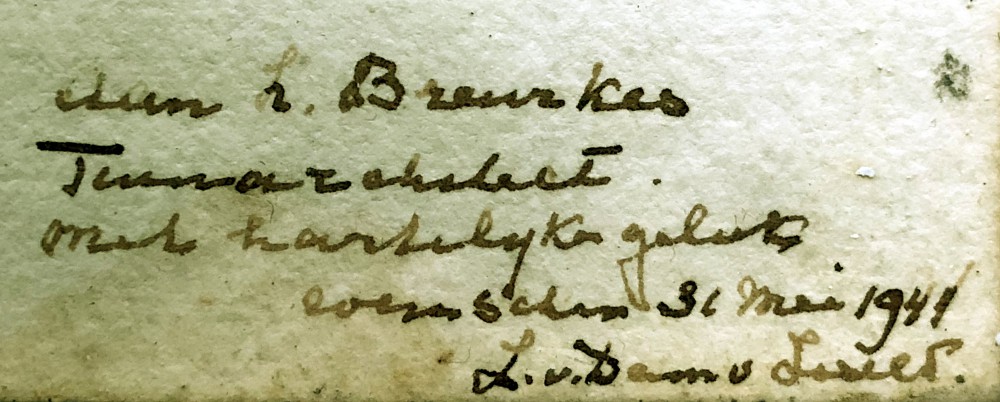 aan h. Breurkes
Tuinarchitect.
Met hartelyke geluk
wenschen 31 Mei 1941
L. v. Dam v